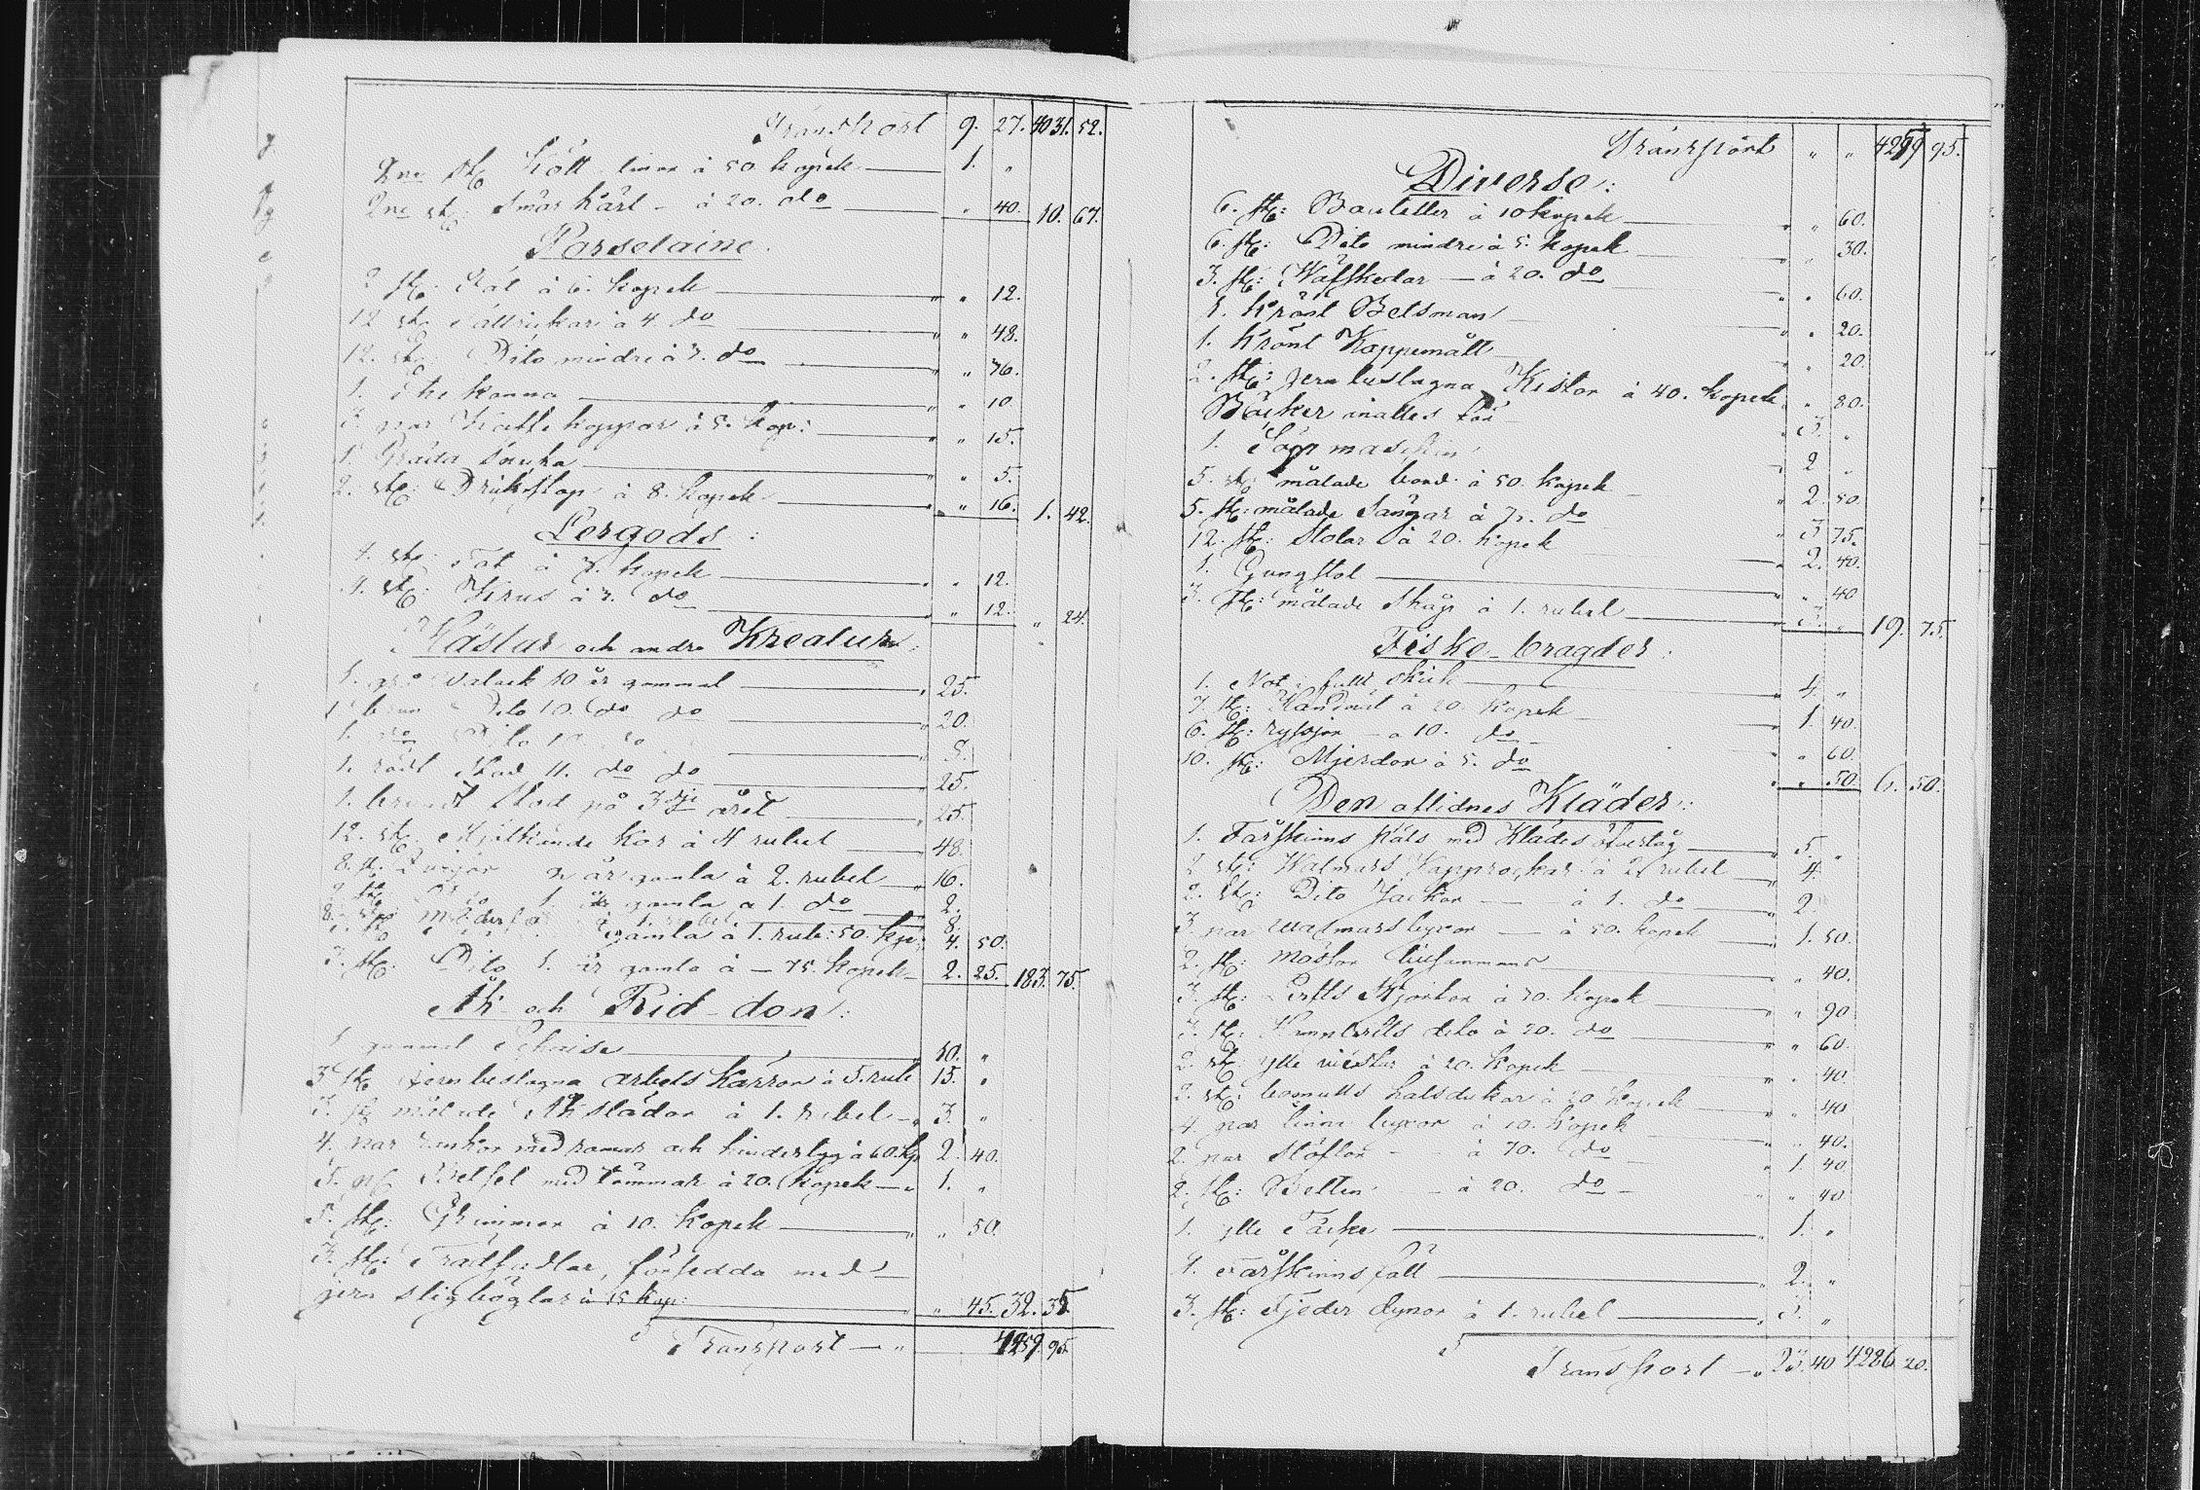 Transport 9. 27. 4031. 52.
2ne st: Kött tinor à 50 kopek 1. "
2ne st: Smör kärl - à 20. do " 40. 10. 67.
Porselaine
2 st: Fat à 6. kopek " " 12.
12 st. Tallrickar à 4 do " " 48.
12. st: Dito mindre à 3. do " " 36.
1. The kanna " " 10
3. par Kaffe koppar à 5. kop: " " 15.
1. Grädd snicka " " 5.
2. st: Drickstop à 8. kopek " " 16. 1. 42.
Lergods:
4. st: Fat à 3. kopek " " 12.
4. st: Krus à 3. do " " 12. " 24.
Hästar och andra Kreatur:
1. grå Valack 10 år gammal " 25.
1 brun Dito 10. do do " 20.
1. Dito 10 " 5.
1. rödt Stod 11. do do " 25.
1. brunt Stod på 3dje året " 25.
12. st. Mjölkande kor à 4 rubel 48.
8. st. år gamla à 2. rubel " 16.
2. st. 1. år gamla à 1. do 2.
8. st. à 1. rubel 8.
gamla à 1. rub: 50. kp: 4. 50.
3. st: Dito 1. år gamla à - 75. kopek 2. 25. 183. 75.
Åk- och Rid-don:
1 gammal Schaise 10. "
3 st. jern beslagna arbets kärror à 5. rub 15. "
3. st målade Åkslädor à 1. rubel 3. "
4. par rankor med ramar och hindertyg à 60. kp 2. 40.
5. st Betsel med tömmar à 20. kopek 1. "
5. st: Grimmor à 10. kopek " 50.
3. st: Trädsadlar, försedda med
jern stigböglar à 15 kop: " 45. 32. 35.
Transport " 4259. 95.
Transport " " 4259 95.
Diverse:
6. st: Bouteller à 10 kopek " " 60.
6. st: Dito mindre à 5. kopek " " 30.
3. st: Wäfskedar - à 20. do " " 60.
1. krönt Betsman " " 20.
1. krönt Kappemått " 20.
2. st: jern beslagna Kistor à 40. kopek " " 80.
Böcker inalles för " 3. "
1. Såg maschin 2 "
5. st: målade bord à 50. kopek " 2. 50.
5. st: målade Sängar à 75. do " 3 75.
12. st: Stolar à 20. kopek " 2. 40.
1. Gungstol " " 40
3. st: målade Skåp à 1. rubel " 3. " 19. 75.
Fiske-bragder:
1. Not i fullt skick " 4. "
7 st: à 20. kopek " 1. 40.
6. st: ryssjor - à 10. do " " 60.
10. st: Mjerdor à 5. do " " 50 6. 50.
Den aflidnes Kläder:
1. Fårskinns päls med klädes öfvertåg " 5. "
2 st: Walmars Kapprockar à 2 rubel " 4.
2. st: Dito Jackor - à 1. do " 2.
3 par walmarsbyxor - à 50. kopek " 1. 50.
2. st: mössor tilsammans " 40.
3. st: Lerfts Skjortor à 30. kopek " " 90
3. st: dito à 20. do " " 60.
2. st. ylle västar à 20. kopek " " 40.
2. st: bomulls halsdukar à 20 kopek " " 40
4 par linne byxor à 10. kopek " " 40.
2. par Stöflor - à 70. do " 1. 40.
2. st: Bälten - à 20. do " " 40
1. ylle Täcke " 1. "
1. Fårskinns fäll " 2. "
3. st: Fjeder dynor à 1. rubel " 3. "
Transport " 23. 40 4286 20.